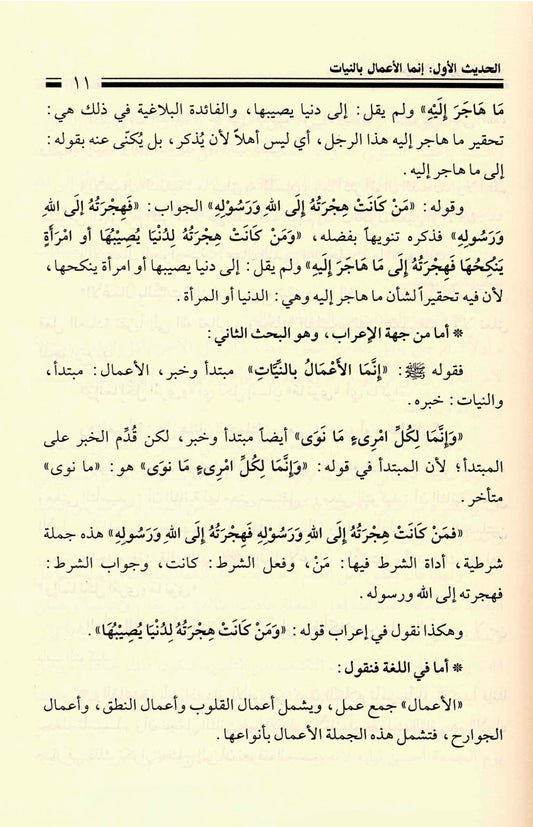 الحديث الأول: إنما الأعمال بالنيات
١١
مَا هَاجَرَ إِلَيْهِ» ولم يقل: إلى دنيا يصيبها، والفائدة البلاغية في ذلك هي:
تحقير ما هاجر إليه هذا الرجل، أي ليس أهلاً لأن يُذكر، بل يُكنّى عنه بقوله:
إلى ما هاجر إليه.
وقوله: «مَنْ كَانَتْ هِجْرَتُهُ إِلَى اللهِ وَرَسُوْلِهِ» الجواب: «فَهِجْرَتُهُ إلَى اللهِ
وَرَسُولِهِ» فذكره تنويهاً بفضله، «وَمَنْ كَانَتْ هِجْرَتُهُ لِدُنْيَا يُصِيْبُهَا أو امْرَأَةٍ
يَنْكِحُهَا فَهِجْرَتُهُ إلَى مَا هَاجَرَ إِلَيهِ» ولم يقل: إلى دنيا يصيبها أو امرأة ينكحها،
لأن فيه تحقيراً لشأن ما هاجر إليه وهي: الدنيا أو المرأة.
* أما من جهة الإعراب، وهو البحث الثاني:
فقوله ﷺ: «إنَّمَا الأَعْمَالُ بالنِّيَّاتِ» مبتدأ وخبر، الأعمال: مبتدأ،
والنيات: خبره.
«وَإِنَّمَا لِكُلِّ امْرِىءٍ مَا نَوَى» أيضاً مبتدأ وخبر، لكن قُدِّم الخبر على
المبتدأ؛ لأن المبتدأ في قوله: «وَإِنَّمَا لِكُلِّ امْرِىءٍ مَا نوَى» هو: «ما نوى»
متأخر.
«فمَنْ كَانَتْ هِجْرَتُهُ إلَى اللهِ وَرَسُولِهِ فَهِجْرَتُهُ إلَى اللهِ وَرَسُولِهِ» هذه جملة
شرطية، أداة الشرط فيها: مَنْ، وفعل الشرط: كانت، وجواب الشرط:
فهجرته إلى الله ورسوله.
وهكذا نقول في إعراب قوله: «وَمَنْ كَانَتْ هِجْرَتُهُ لِدُنْيَا يُصِيْبُهَا».
* أما في اللغة فنقول:
«الأعمال» جمع عمل، ويشمل أعمال القلوب وأعمال النطق، وأعمال
الجوارح، فتشمل هذه الجملة الأعمال بأنواعها.